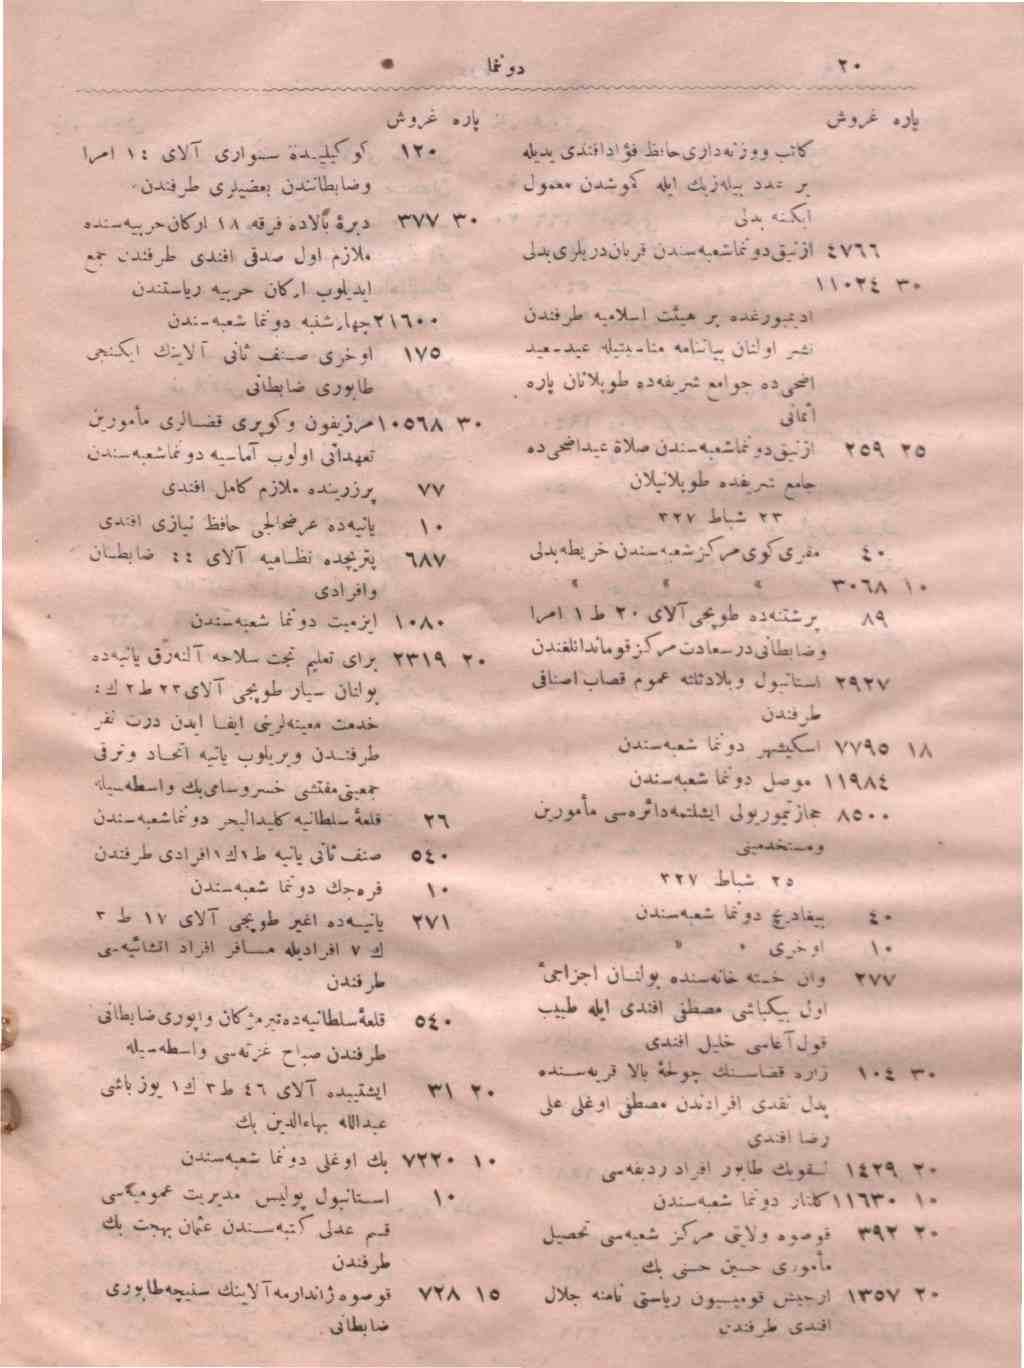 ٢٠ دونما
پاره غروش
كاتب ووزنه‌دارى حافظ فؤاد افندى يديله
بر عدد بيله‌زيك ايله كموشدن معمول
ايكنه بدلى
٤٧٦٦ ازنيق دونما شعبه‌سندن قربان دريلرى بدلى
٣٠ ١١٠٢٤
اديمبورغده بر هيئت اسلاميه طرفندن
نشر اولنان بياننامه مناسبتيله عيد سعيد
اضحى‌ده جوامع شريفه‌ده طوپلانان پاره
اثمانى
٢٥ ٢٥٩ ازنيق دونما شعبه‌سندن صلاة عيد اضحى‌ده
جامع شريفده طوپلانيلان
٢٣ شباط ٣٢٧
٤٠ مقرى كوى مركز شعبه‌سندن خريطه بدلى
١٠ ٣٠٦٨ » » »
٨٩ پرشتنه‌ده طوپجى آلاى ٢٠ ط ١ امرا
وضابطانى درسعادت مركز قوماندانلغندن
٢٩٢٧ استانبول وبلاد ثلثه عموم قصاب اصنافى
طرفندن
١٨ ٧٧٩٥ اسكيشهر دونما شعبه‌سندن
١١٩٨٤ موصل دونما شعبه‌سندن
٨٥٠٠ حجاز تيمورىولى ايشلتمه دائره‌سى مأمورين
ومستخدمينى
٢٥ شباط ٣٢٧
٤٠ بيغاديچ دونما شعبه‌سندن
١٠ اوخرى » »
٢٧٧ وان خسته خانه‌سنده بولنان اجزاجىء
اول بيكباشى مصطفى افندى ايله طبيب
قول آغاسى خليل افندى
٣٠ ١٠٤ زاره قضاسنك چولحۀ بالا قريه‌سنده
بدل نقدى افرادندن مصطفى اوغلى على
رضا افندى
٢٠ ١٤٢٩ طابور افراد رديفه‌سى
١٠ ١١٦٣٠ كلنار دونما شعبه‌سندن
٢٠ ٣٩٢ قوصوه ولايتى مركز شعبه‌سى تحصيل
مأمورى حسين حسنى بك
٢٠ ١٣٥٧ ارجيش قوميسيون رياستى نامنه جلال
افندى طرفندن
پاره غروش
١٢٠ سوارى آلاى ١٤ امرا
وضابطانندن بعضيلرى طرفندن
٣٠ ٣٧٧ ديرۀ بالاده فرقه ١٨ اركان حربيه‌سنده
ملازم اول صدقى افندى طرفندن جمع
ايديلوب اركان حربيه رياستندن
٢١٦٠٠ چهارشنبه دونما شعبه‌سندن
١٧٥ اوخرى صنف ثانى آلاينك ايكنجى
طابورى ضابطانى
٣٠ ١٠٥٦٨ مرزيفون وكوپرى قضالرى مأمورين
تعهداتى اولوب آماسيه دونما شعبه‌سندن
٧٧ پرزرينده ملازم كامل افندى
١٠ يانيه‌ده عرضحالجى حافظ نيازى افندى
٦٨٧ پتريچده نظاميه آلاى ٤٤ ضابطان
وافرادى
١٠٨٠ ايزميت دونما شعبه‌سندن
٢٠ ٢٣١٩ براى تعليم تحت سلاحه آلنه‌رق يانيه‌ده
بولنان سيار طوپجى آلاى ٢٣ ط ٢ ك ٤
خدمت معينه‌لرينى ايفا ايدن درت نفر
طرفندن ويريلوب يانيه اتحاد وترقى
جمعيتى مفتشى خسرو سامى بك واسطه‌سيله
٢٦ قلعۀ سلطانيه كليدالبحر دونما شعبه‌سندن
٥٤٠ صنف ثانى يانيه ط ١ ك ١ افرادى طرفندن
١٠ قره‌جك دونما شعبه‌سندن
٢٧١ يانيه‌ده اغير طوپجى آلاى ١٧ ط ٣
ك ٧ افراديله مسافر افراد انشائيه‌سى
طرفندن
٥٤٠ قلعۀ سلطانيه‌ده تيرمژكان واپورى ضابطانى
طرفندن صباح غزته‌سى واسطه‌سيله
٢٠ ٣١ ايشتيبده آلاى ٤٦ ط ٣ ك ١ يوزباشى
عبدالله بهاءالدين بك
١٠ ٧٢٢٠ بك اوغلى دونما شعبه‌سندن
١٠ استانبول پوليس مديريت عموميه‌سى
قسم عدلى كتبه‌سندن عثمان بهجت بك
طرفندن
١٥ ٧٢٨ قوصوه ژاندارمه آلاينك سنيچه طابورى
ضابطانى